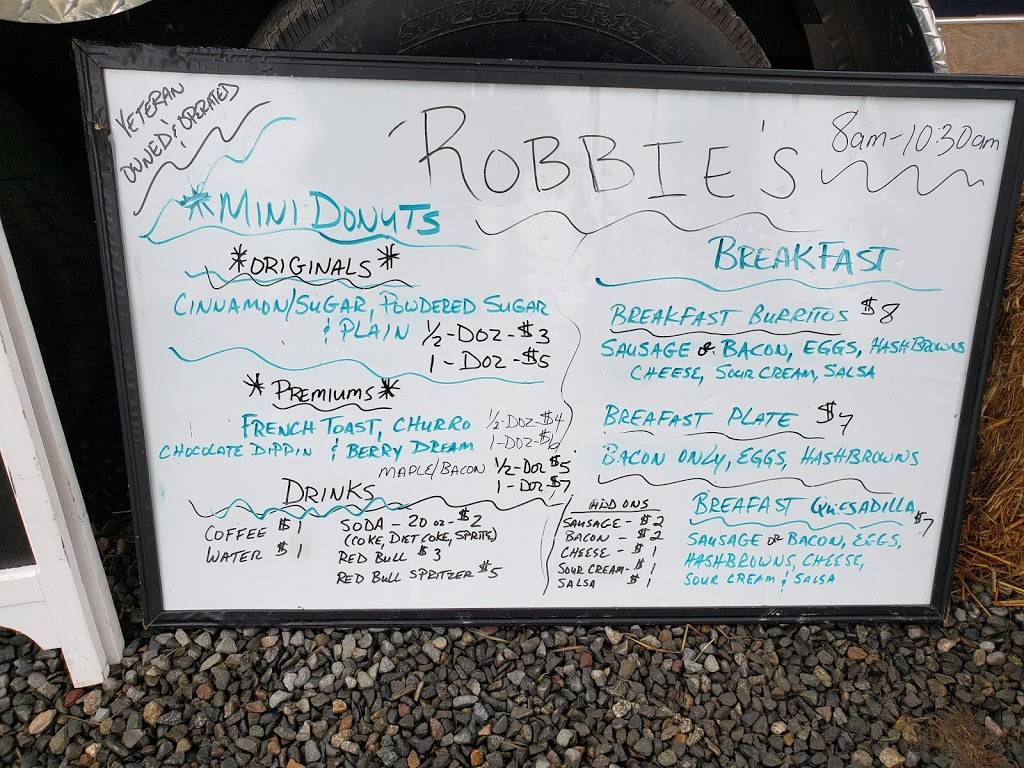 ST 205/75R15
VETERAN
OWNED & OPERATED
ROBBIE'S
8am-10:30am
*MINI DONUTS
*ORIGINALS*
CINNAMON/SUGAR, POWDERED SUGAR
& PLAIN 1/2-DOZ-$3
1-DOZ-$5
*PREMIUMS*
FRENCH TOAST, CHURRO 1/2-DOZ-$4
CHOCOLATE DIPPIN & BERRY DREAM 1-DOZ-$6
MAPLE/BACON 1/2-DOZ $5
1-DOZ-$7
DRINKS
COFFEE $1
WATER $1
SODA - 20 oz - $2
(COKE, DIET COKE, SPRITE)
RED BULL $3
RED BULL SPRITZER $5
BREAKFAST
BREAKFAST BURRITOS $8
SAUSAGE or BACON, EGGS, HASHBROWNS
CHEESE, SOUR CREAM, SALSA
BREAFAST PLATE $7
BACON ONLY, EGGS, HASHBROWNS
ADD ONS
SAUSAGE - $2
BACON - $2
CHEESE - $1
SOUR CREAM - $1
SALSA $1
BREAFAST QUESADILLA $7
SAUSAGE or BACON, EGGS,
HASHBROWNS, CHEESE,
SOUR CREAM & SALSA